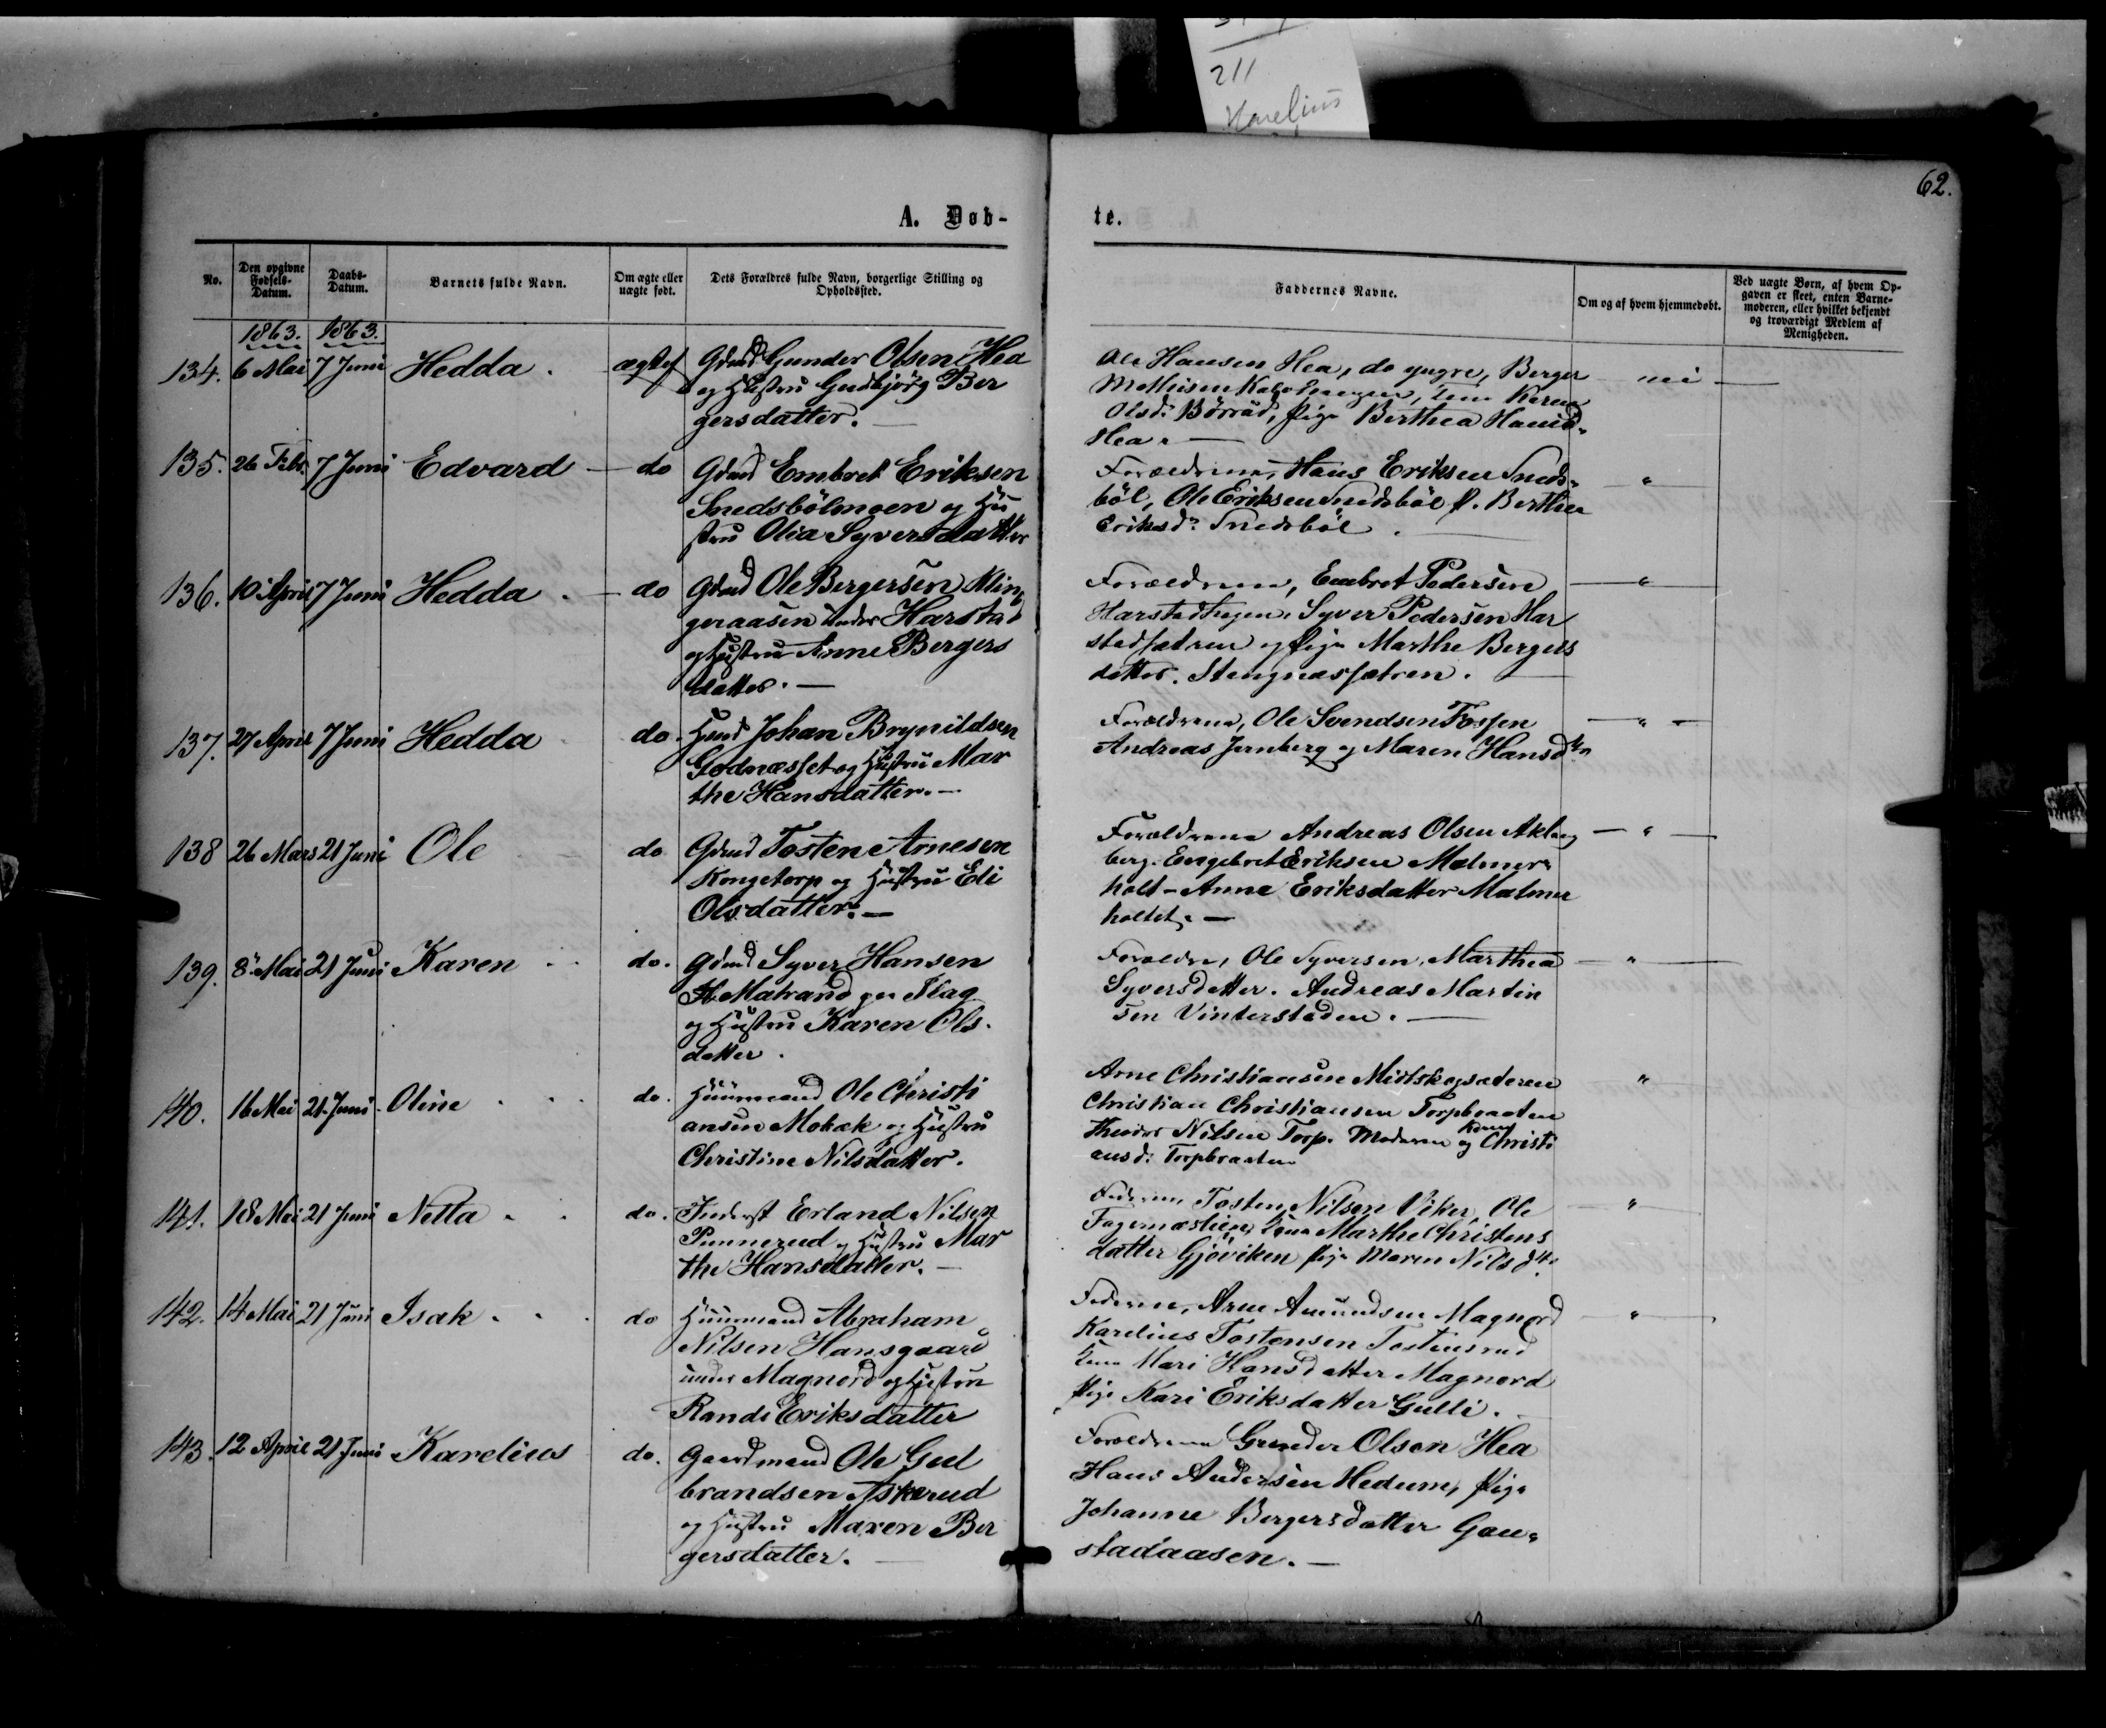 211
Karelius
62.
A. Døb-
te.
No.
Den opgivne
Fødsels-
Datum.
Daabs-
Datum.
Barnets fulde Navn.
Om ægte eller
uægte født.
Dets Forældres fulde Navn, borgerlige Stilling og
Opholdssted.
Faddernes Navne.
Om og af hvem hjemmedøbt.
Ved uægte Børn, af hvem Op-
gaven er skeet, enten Barne-
moderen, eller hvilket bekjendt
og troværdigt Medlem af
Menigheden.
1863. 1863.
134. 6 Mai 7 Juni Hedda. ægte
Gdmd Gunder Olsen Hea
og Hustru Gudbjörg Ber
gersdatter.
Ole Hansen Hea, do yngre, Berger
Karen
Olsd: Börrud, Pige Berthea Hansd.
Hea.
nei
135. 26 Febr. 7 Juni Edvard do
Gdmd Embret Eriksen
Snedsbölmoen og Hu
stru Olia Syversdatter
Forældrene, Hans Eriksen Sneds-
böl, Ole Eriksen Snedsböl P. Berthea
Eriksdr Snedsböl.
"
136. 10 April 7 Juni Hedda. do
Gdmd Ole Bergersen Klin
geraasen under Harstad
og Hustru Anne Bergers
datter.
Forældrene, Embret Pedersen
Harstadhagen, Syver Pedersen Har
stadsætren og Pige Marthe Bergers
datter. Stengnæssætren.
"
137. 27 April 7 Juni Hedda do.
Hmd Johan Brynildsen
Godnæsset og Hustru Mar
the Hansdatter.
Forældrene, Ole Svendsen Fossen
Andreas Jernberg og Maren Hansdtr
"
138 26 Mars 21 Juni Ole do
Gdmd Tosten Arnesen
Kongetorp og Hustru Eli
Olsdatter.
Forældrene Andreas Olsen Aklang
berg. Engebret Eriksen Malmer
holt - Anne Eriksdatter Malmer
holtet.
"
139. 8 Mai 21 Juni Karen do.
Gdmd Syver Hansen
St. Matrand Flag
og Hustru Karen Ols.
datter.
Forældre, Ole Syversen, Marthea
Syversdatter. Andreas Martin
sen Vinterstaden.
"
140. 16 Mai 21. Juni Oline do.
Huusmand Ole Christi
ansen Mokæk og Hustru
Christine Nilsdatter.
Arne Christiansen Midtskogsæteren
Christian Christiansen Torpbraaten
Theodor Nilsen Torp. Moderen og Karen Christi
ansd: Torpbraaten
"
141. 18 Mai 21 Juni Netta do.
Inderst Erland Nilsen
Punnerud og Hustru Mar
the Hansdatter.
Faderen, Tosten Nilsen Viker, Ole
Fagernæstien, Kone Marthe Christens
datter Gjöviken Pige Maren Nilsdtr.
"
142. 14 Mai 21 Juni Isak. do
Huusmand Abraham
Nilsen Hansgaard
under Magnord og Hustru
Randi Eriksdatter
Faderen, Arne Amundsen Magnord
Karelius Tostensen Tostensrud
Kone Mari Hansdatter Magnord
Pige Kari Eriksdatter Gulli.
"
143. 12 April 21 Juni Karelius do.
Gaardmand Ole Gul
brandsen Askerud
og Hustru Maren Ber
gersdatter.
Forældrene Gunder Olsen Hea
Hans Andersen Hedum, Pige
Johanne Bergersdatter Gau-
stadaasen.